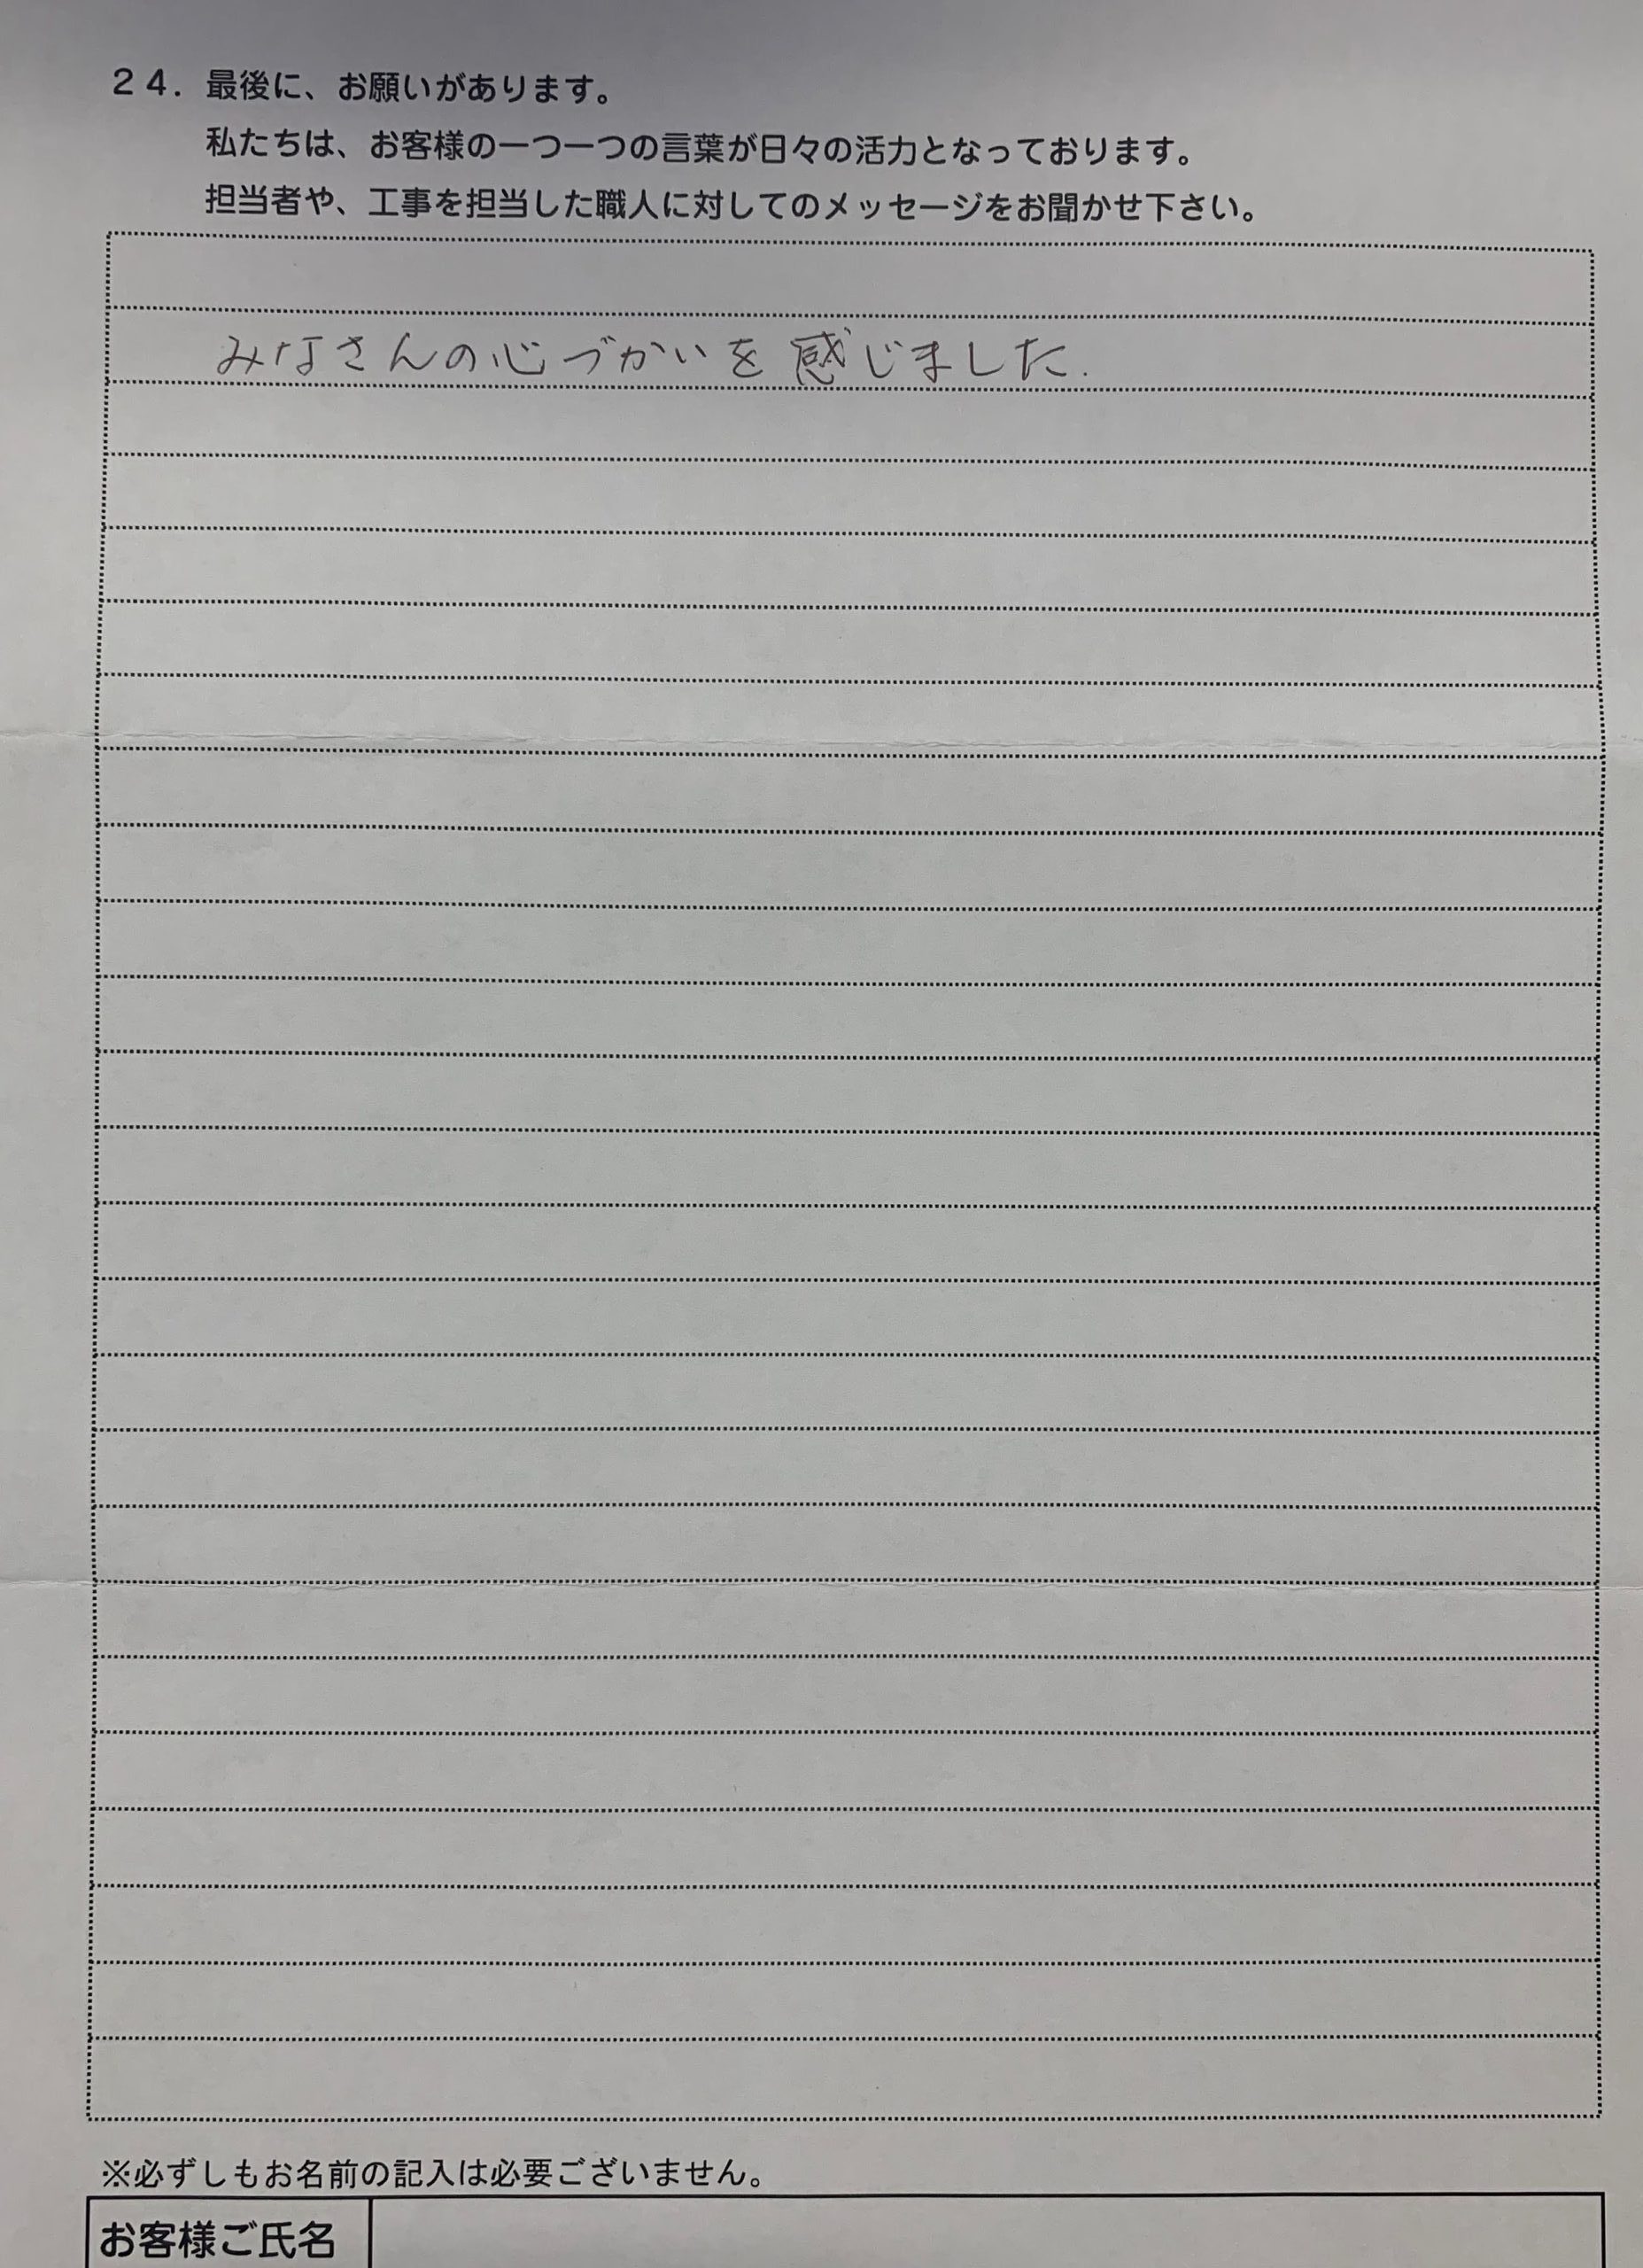 ２４．最後に、お願いがあります。
私たちは、お客様の一つ一つの言葉が日々の活力となっております。
担当者や、工事を担当した職人に対してのメッセージをお聞かせ下さい。
みなさんの心づかいを感じました.
※必ずしもお名前の記入は必要ございません。
お客様ご氏名